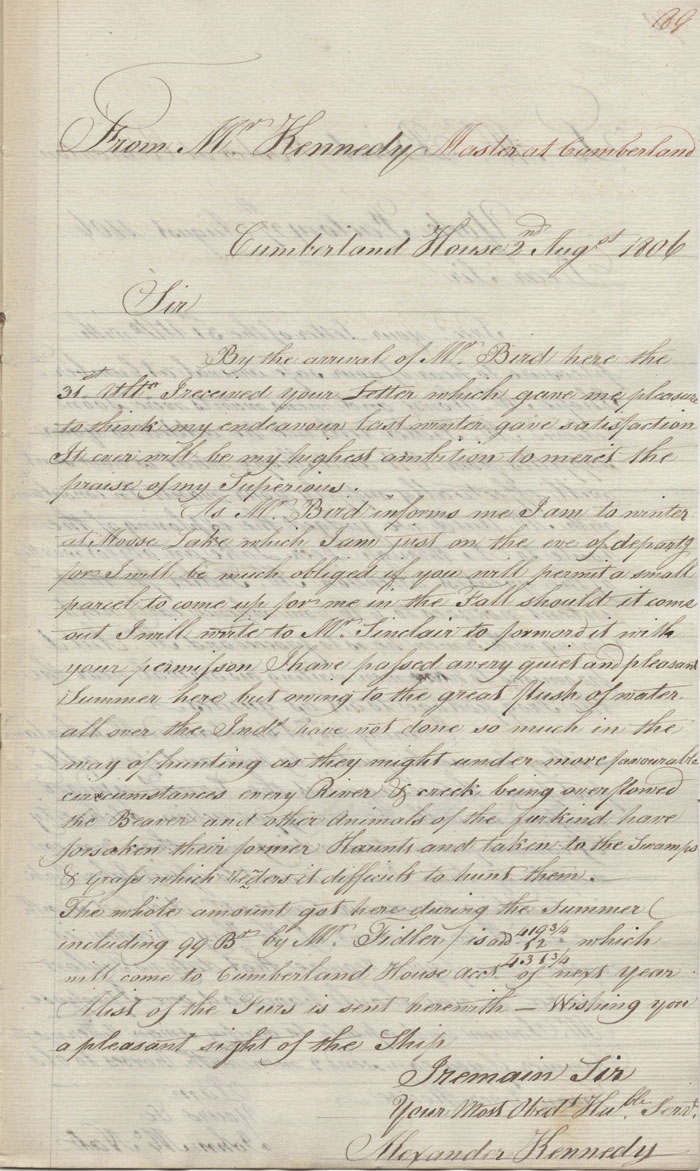 189
From Mr. Kennedy Master at Cumberland
Cumberland House 2nd Augst 1806
Sir
By the arrival of Mr. Bird here the
31st Ulto. I received your Letter which gave me pleasure
to think my endeavour last winter gave satisfaction
It ever will be my highest ambition to meret the
praise of my Superious.
As Mr. Bird informs me I am to winter
at Moose Lake which I am just on the eve of departg
for I will be much obliged if you will permit a small
parcel to come up for me in the Fall should it come
out I will write to Mr. Sinclair to forward it with
your permisson I have passed a very quiet and pleasant
Summer here but owing to the great flush of water
all over the Inds. have not done so much in the
way of hunting as they might under more favourable
circumstances every River & creek being overflowed
the Beaver and other Animals of the fur kind have
forsaken their former Haunts and taken to the Swamps
& Grass which renders it difficult to hunt them.
The whole amount got here during the Summer (
including 99 Br. by Mr. Fidler / is add 419 3/4
12
431 3/4 which
will come to Cumberland House Acct. of next year
A list of the Furs is sent herewith – Wishing you
a pleasant sight of the Ship
I remain Sir
Your Most Obedt. Hu.ble Servt.
Alexander Kennedy